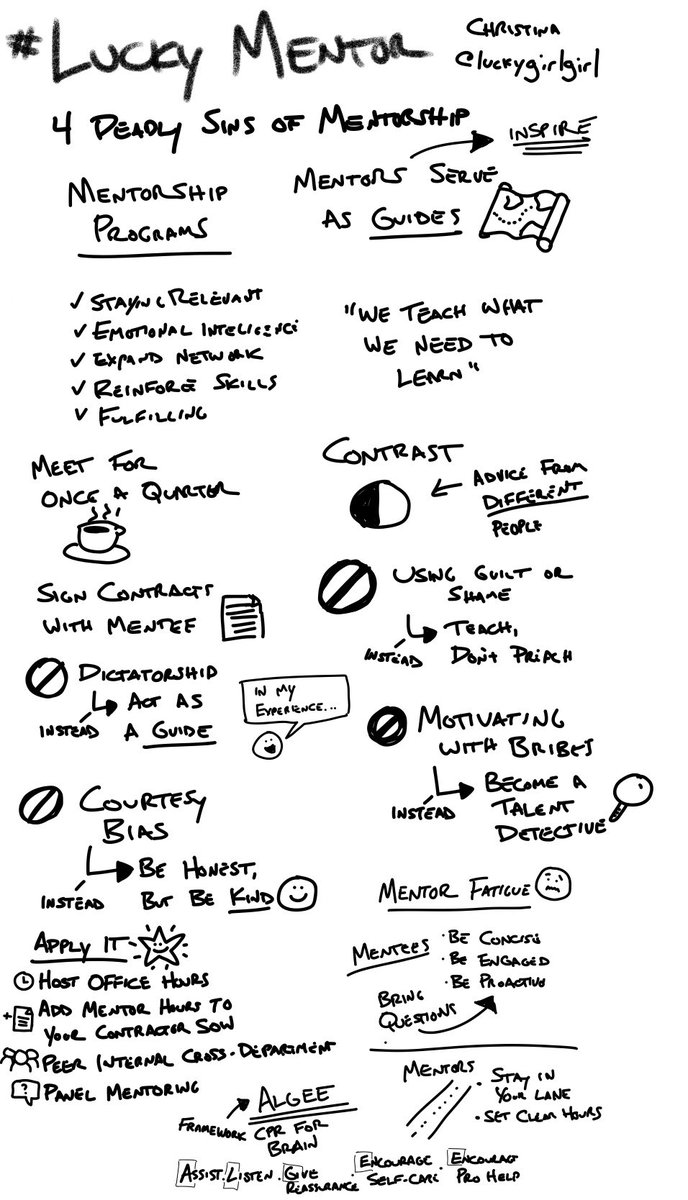 #LUCKY MENTOR
CHRISTINA
@luckygirlgirl
4 DEADLY SINS OF MENTORSHIP
INSPIRE
MENTORSHIP
PROGRAMS
MENTORS SERVE
AS GUIDES
✓ STAYING RELEVANT
✓ EMOTIONAL INTELIGENCE
✓ EXPAND NETWORK
✓ REINFORCE SKILLS
✓ FULFILLING
"WE TEACH WHAT
WE NEED TO
LEARN"
MEET FOR
ONCE A QUARTER
CONTRAST
ADVICE FROM
DIFFERENT
PEOPLE
SIGN CONTRACTS
WITH MENTEE
USING GUILT OR
SHAME
INSTEAD
TEACH,
DON'T PREACH
DICTATORSHIP
INSTEAD
ACT AS
A GUIDE
IN MY
EXPERIENCE...
MOTIVATING
WITH BRIBES
INSTEAD
BECOME A
TALENT
DETECTIVE
COURTESY
BIAS
INSTEAD
BE HONEST,
BUT BE KIND
MENTOR FATIGUE
MENTEES
· BE CONCISE
· BE ENGAGED
· BE PROACTIVE
BRING
QUESTIONS
APPLY IT
HOST OFFICE HOURS
+ ADD MENTOR HOURS TO
YOUR CONTRACTOR SOW
PEER INTERNAL CROSS-DEPARTMENT
? PANEL MENTORING
MENTORS
· STAY IN
YOUR LANE
· SET CLEAR HOURS
ALGEE
FRAMEWORK
CPR FOR
BRAIN
ASSIST · LISTEN · GIVE
REASSURANCE
· ENCOURAGE
SELF-CARE
· ENCOURAGE
PRO HELP